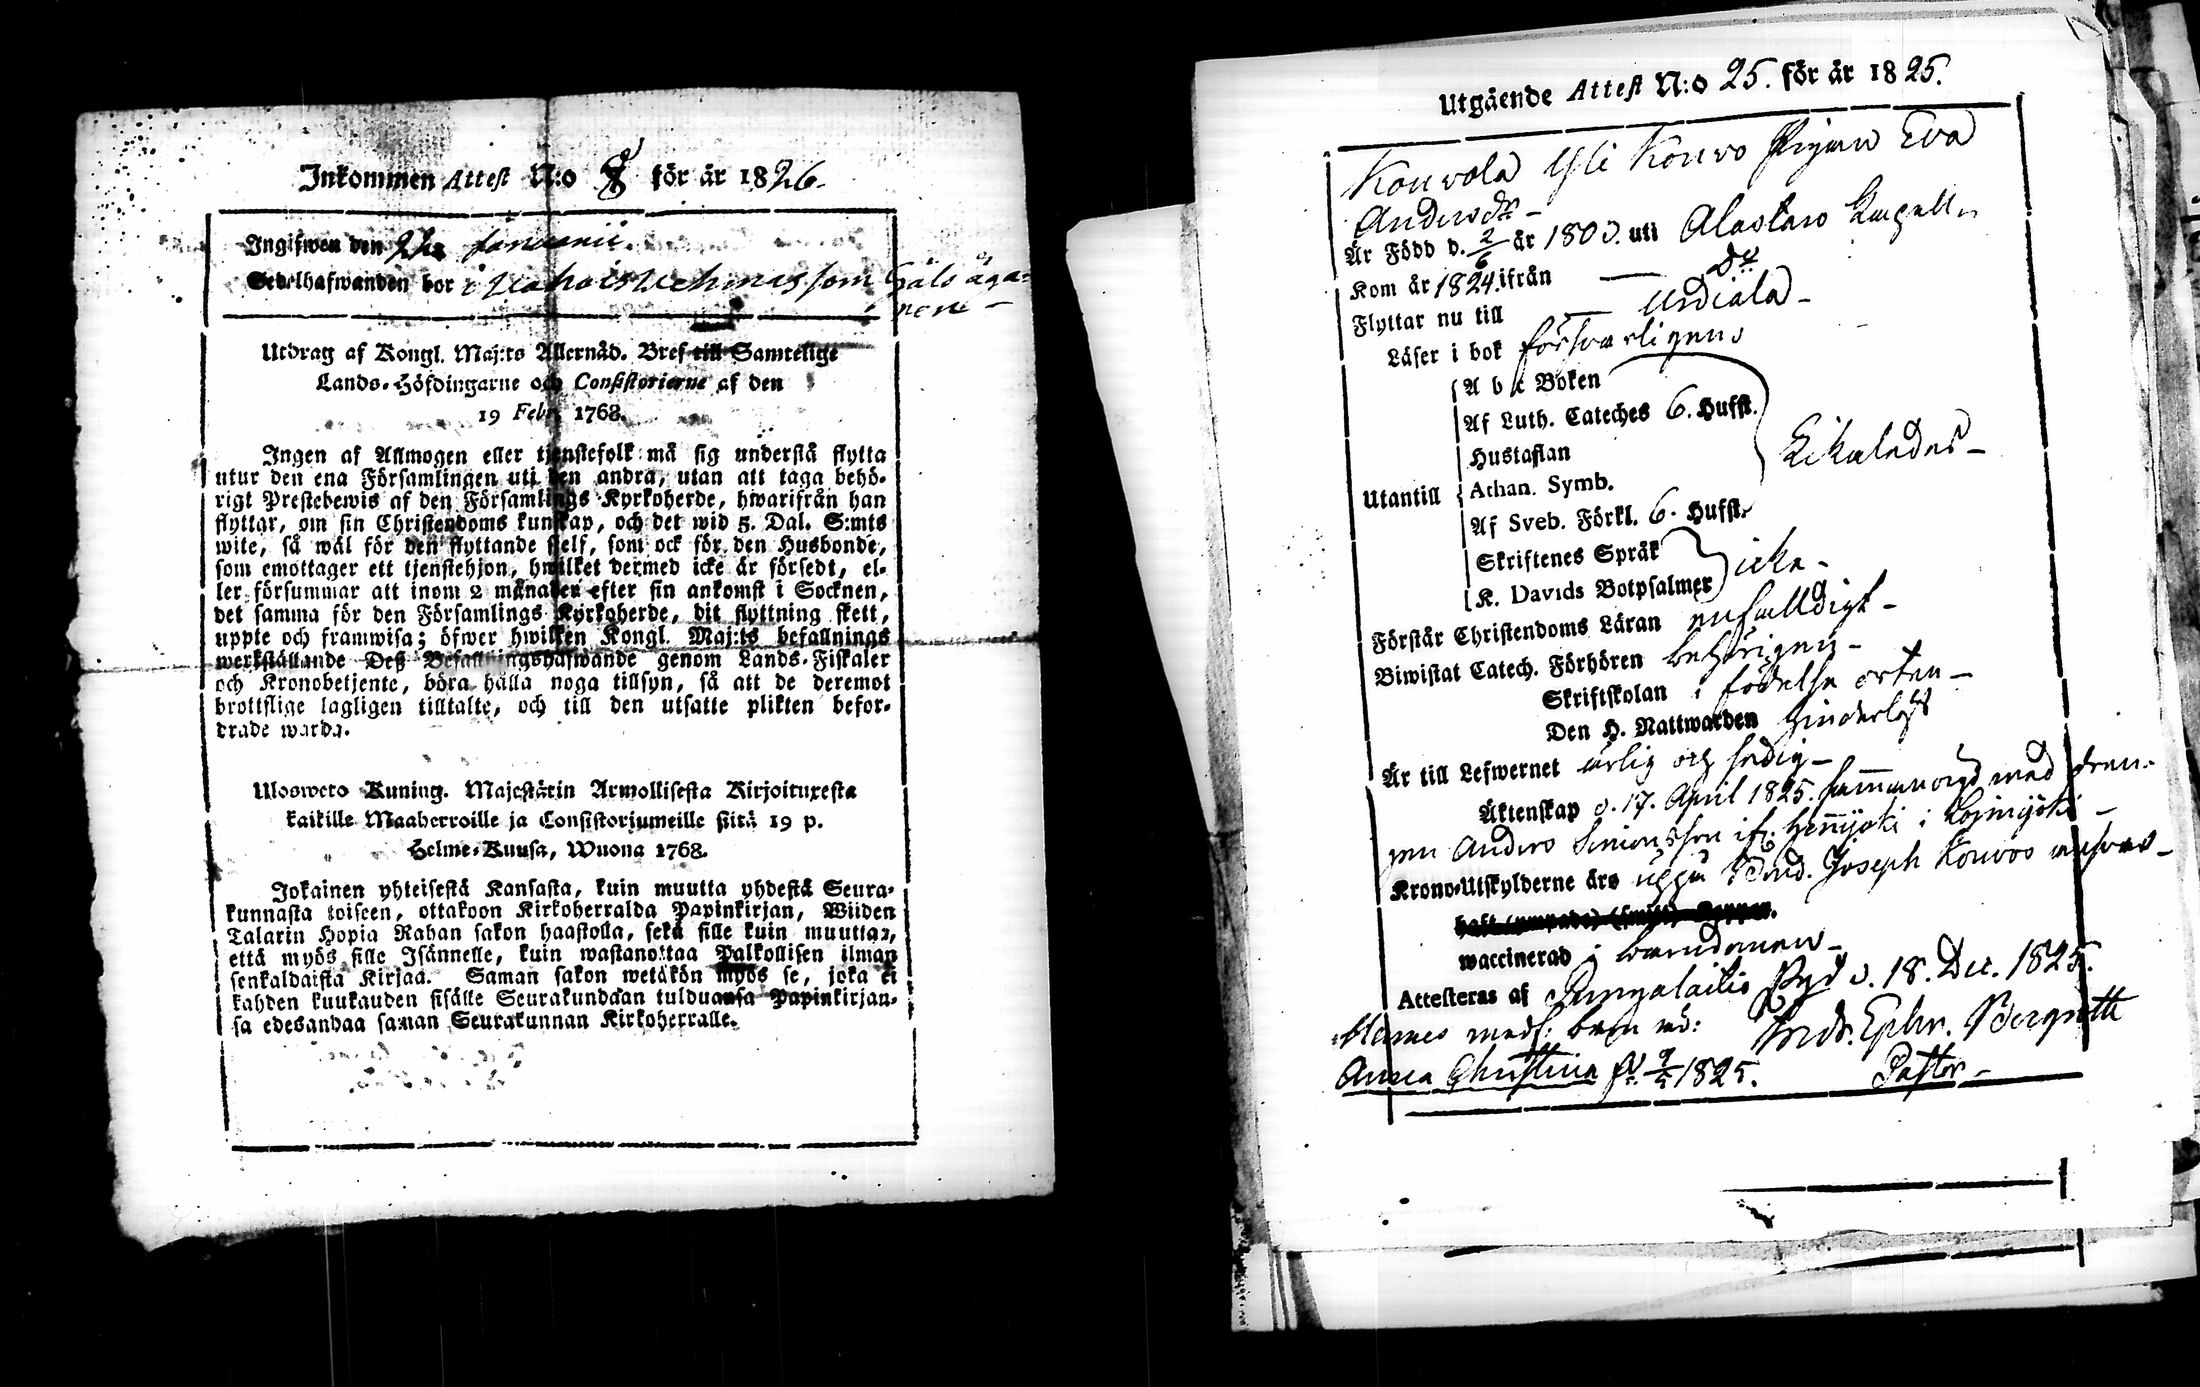 Inkommen Attest N:o 8 för år 1826.
Ingifwen den Januarii.
Sedelhafwanden bor i som Sälö äga-
rene –
Utdrag af Kongl. Maj:ts Allernåd. Bref till Samtelige
Lands-Höfdingarne och Consistorierne af den
19 Febr. 1768.
Ingen af Allmogen eller tjenstefolk må sig understå flytta
utur den ena Församlingen uti den andra, utan att taga behö-
rigt Prestebewis af den Församlings Kyrkoherde, hwarifrån han
flyttar, om sin Christendoms kunskap, och det wid 5. Dal. S:mts
wite, så wäl för den flyttande sjelf, som ock för den Husbonde,
som emottager ett tjenstehjon, hwilket dermed icke är försedt, el-
ler försummar att inom 2 månader efter sin ankomst i Socknen,
det samma för den Församlings Kyrkoherde, dit flyttning skett,
uppte och framwisa; öfwer hwilken Kongl. Maj:ts befallnings
werkställande Deß Befallningshafwande genom Lands-Fiskaler
och Kronobetjente, böra hålla noga tillsyn, så att de deremot
brottslige lagligen tilltalte, och till den utsatte plikten befor-
drade warda.
Ulosweto Kuning. Majestätin Armollisesta Kirjoituxesta
kaikille Maaherroille ja Consistoriumeille siitä 19 p.
Helme-Kuusa, Wuona 1768.
Jokainen yhteisestä Kansasta, kuin muutta yhdestä Seura-
kunnasta toiseen, ottakoon Kirkoherralda Papinkirjan, Wiiden
Talarin Hopia Rahan sakon haastolla, sekä sille kuin muuttaa,
että myös sille Isännelle, kuin wastanottaa Palkollisen ilman
senkaldaista Kirjaa. Saman sakon wetäkön myös se, joka ei
kahden kuukauden sisälle Seurakundaan tulduansa Papinkirjan-
sa edesandaa saman Seurakunnan Kirkoherralle.
Utgående Attest N:o 25. för år 1825.
Kouvola Yli Kouvo Pigan Eva
Andersdr –
Är Född d. 2/6 år 1803. uti Alastaro Kapell
Kom år 1824. ifrån — Do
Flyttar nu till — Urdiala –
Läser i bok försvarligen
A b c Boken
Af Luth. Cateches 6. Hufst.
Hustaflan
Utantill Athan. Symb. likaledes –
Af Sveb. Förkl. 6. Hufst.
Skriftenes Språk
K. Davids Botpsalmer icke –
Förstår Christendoms Läran enfalldigt –
Biwistat Catech. Förhören behörigen –
Skriftskolan i födelse orten –
Den H. Nattwarden hinderlöst
Är till Lefwernet ärlig och sedig –
Äktenskap d. 17. April 1825. sammanvigd med dren-
gen Anders Simonsson ifr. Hennijoki i Loimijoki –
Krono-Utskylderne äro uppå Bond. Joseph Kouvos ansvar –
waccinerad i barndomen –
Attesteras af Pungalaitio Pgd d. 18. Dec. 1825.
Hennes medf: barn är: And. Ephr. Bergroth
Anna Christina fd. 9/5 1825. Pastor –